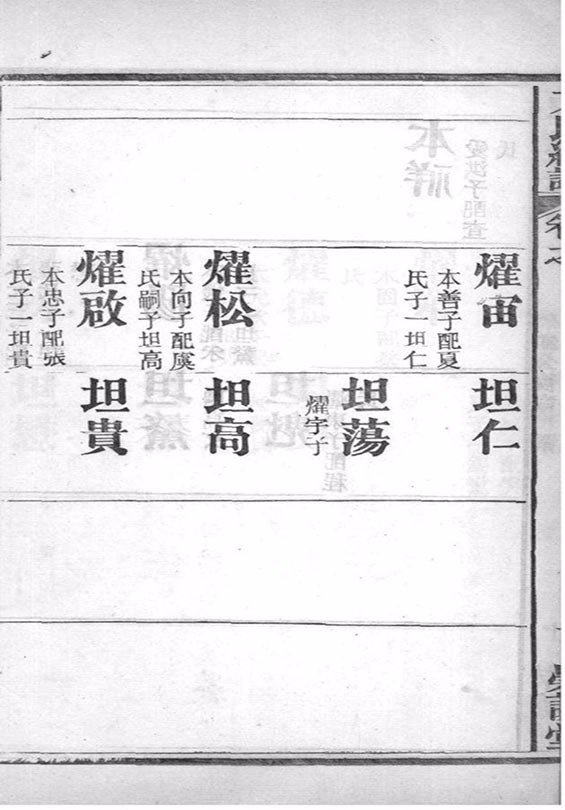 氏統譜
燿宙
本善子配夏
氏子一坦仁
燿松
本向子配虞
氏嗣子坦高
燿啟
本忠子配張
氏子一坦貴
坦仁
坦蕩
燿宇子
坦高
坦貴